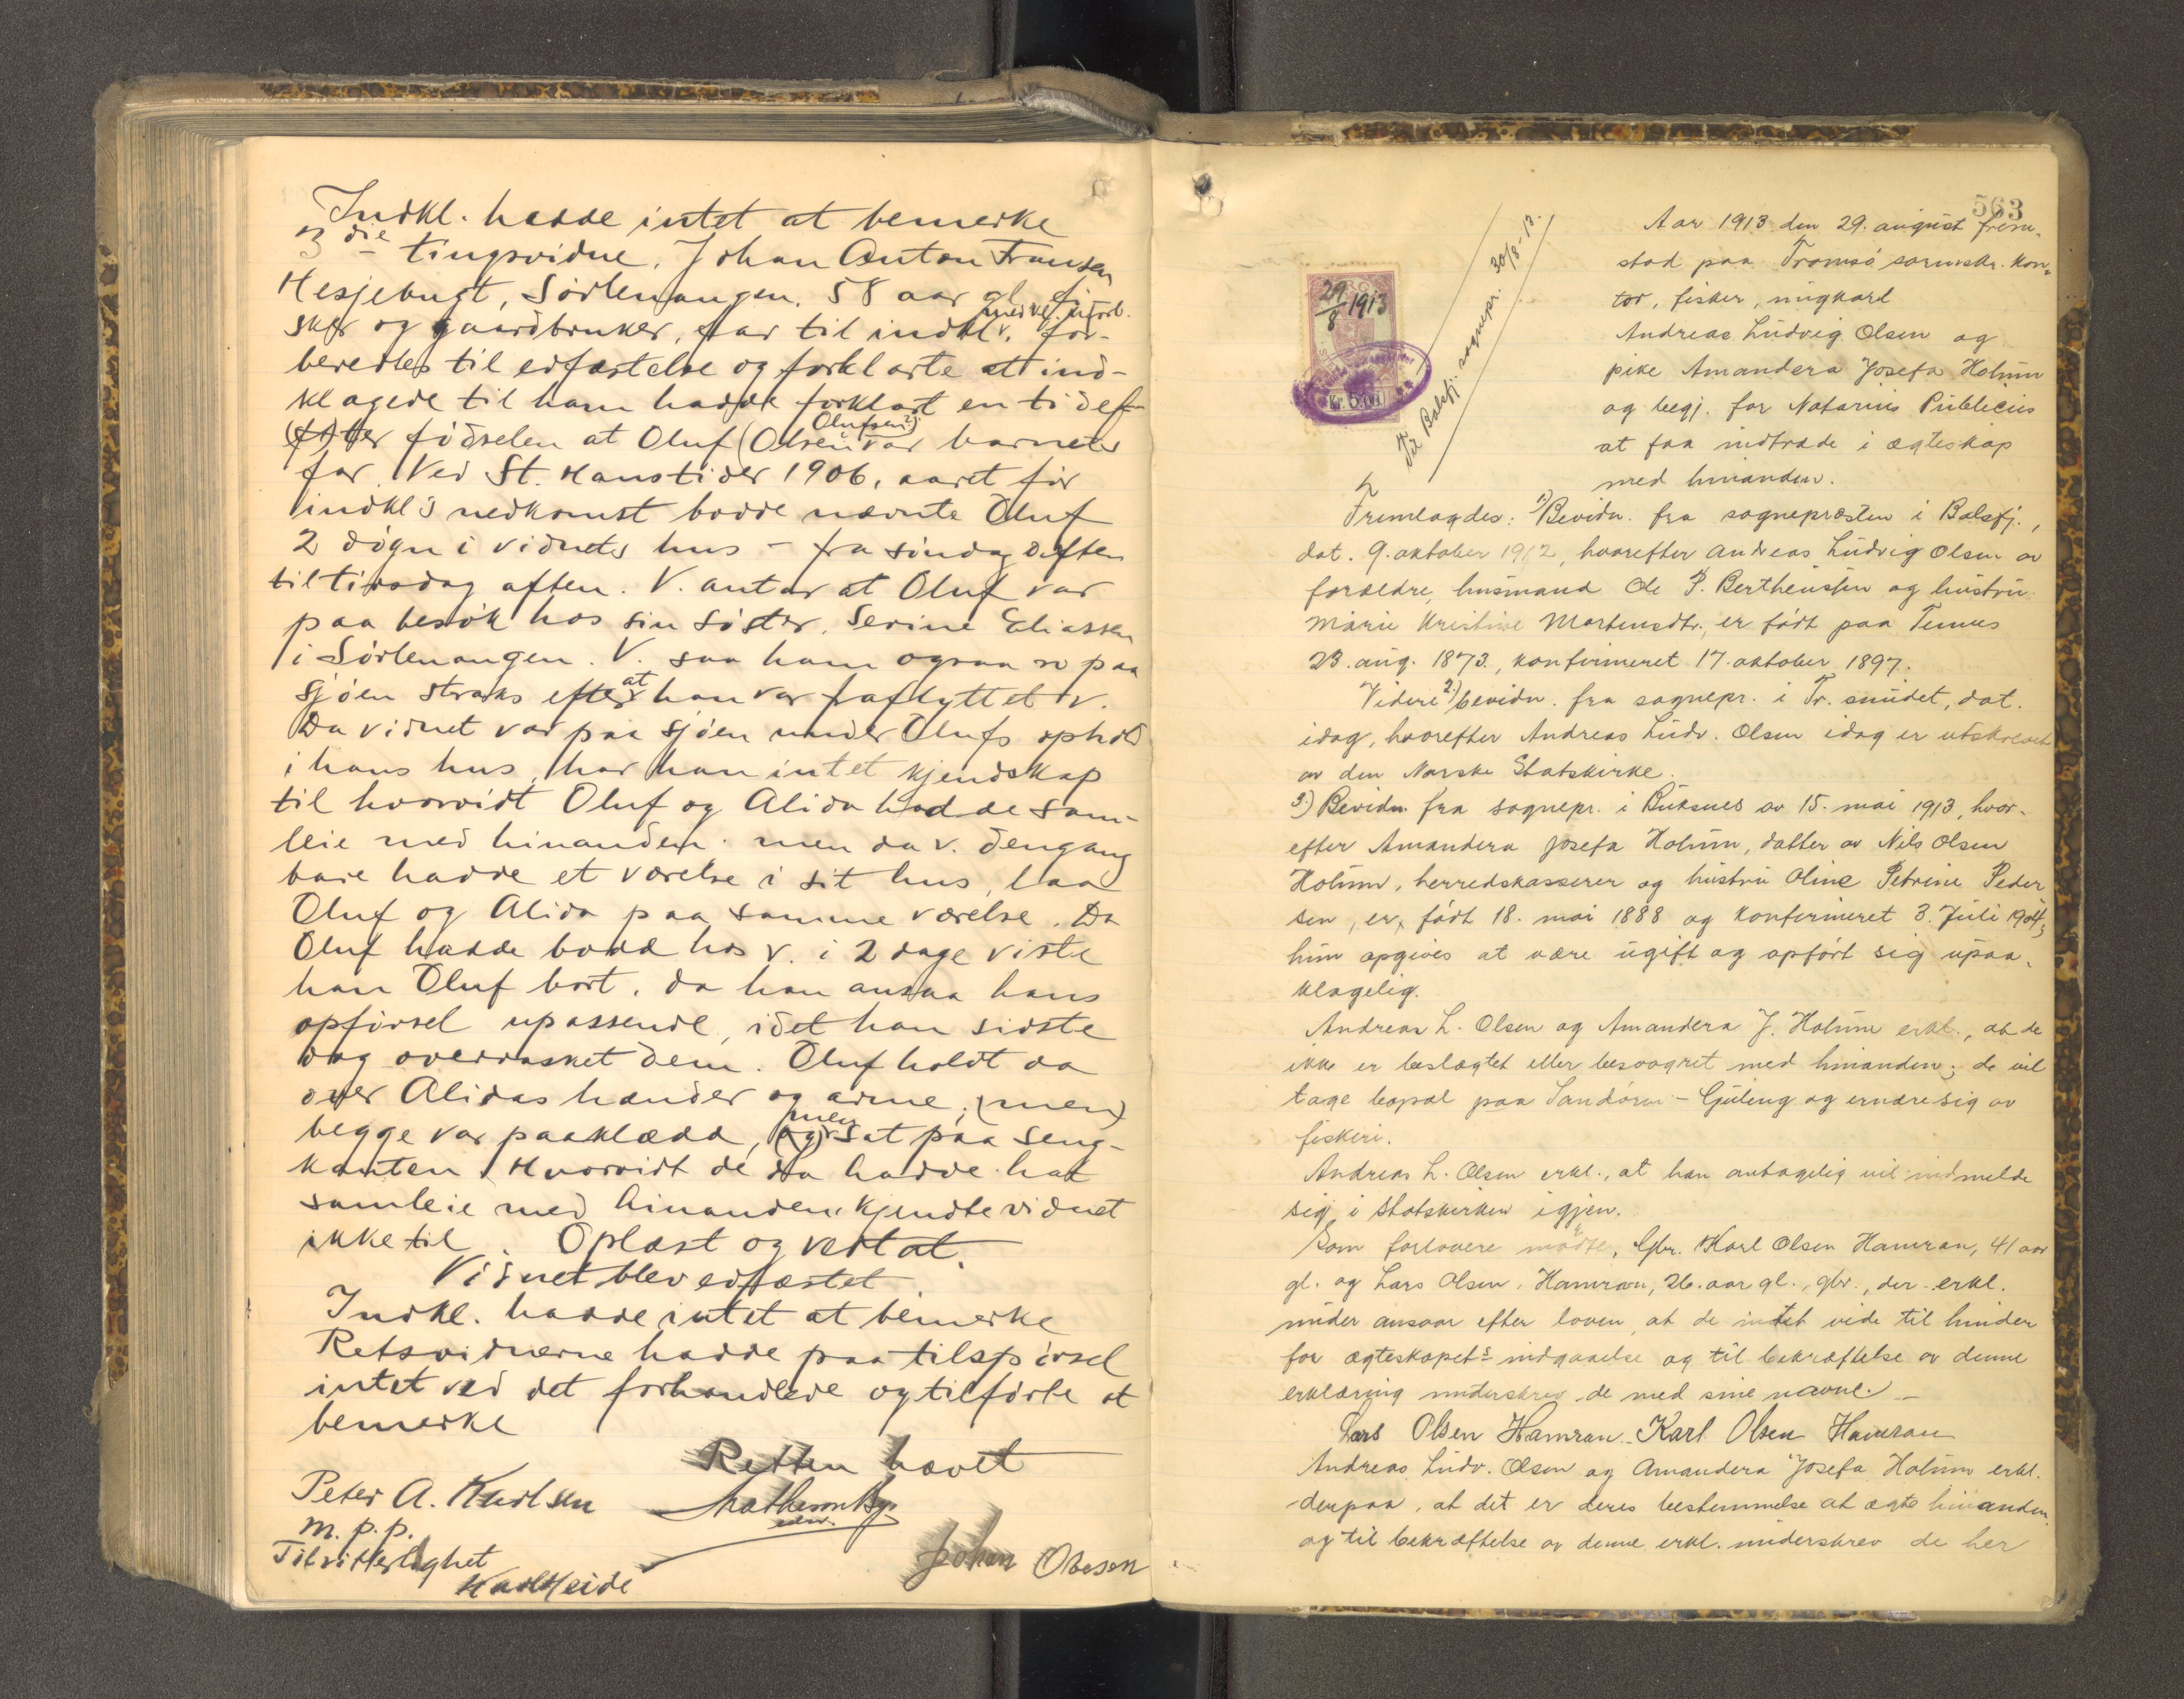 Indkl. hadde intet at bemerke
3die tingsvidne, Johan Anton Fransen
Hesjebugt, Sörlenangen. 58 aar gl. fi-
sker og gaardbruker, far til indkl. v. for-
beredtes til edfæstelse og forklarte at ind-
klagede til ham hadde forklart en tid ef-
(ft)ter födselen at Oluf (Olsen Olufsen?) var barnets
far. Ved St. Hanstider 1906, aaret för
indkl's nedkomst bodde nævnte Oluf
2 dögn i vidnets hus - fra söndag aften
til tirsdag aften. V. antar at Oluf var
paa besök hos sin söster, Serine Eliassen
i Sörlenangen. V. saa ham ogsaa ro paa
sjöen straks efter at han var fraflyttet v.
Da vidnet var paa sjöen under Olufs ophold
i hans hus, har han intet kjendskap
til hvorvidt Oluf og Alida hadde sam-
leie med hinanden. men da v. dengang
bare hadde et værelse i sit hus, laa
Oluf og Alida paa samme værelse. Da
Oluf hadde bodd hos v. i 2 dage viste
han Oluf bort, da han ansaa hans
opförsel upassende, idet han sidste
dag overrasket dem. Oluf holdt da
over Alidas hænder og arme; (men)
begge var paaklædd, (og) men sat paa seng-
kanten. Hvorvidt de da hadde hat
samleie med hinanden kjendte vidnet
ikke til. Oplæst og vedtat.
Vidnet blev edfæstet
Indkl. hadde intet at bemerke
Retsvidnerne hadde paa tilspörsel
intet ved det forhandlede og tilförte at
bemerke
Retten hævet
Peter A. Karlsen
m. p. p.
Tilvitterlighet
Karl Heide
Johan Olesen
563
29/8 1913
Kr. 5.00
Til Balsfj. sognepr. 30/8-13.
Aar 1913 den 29. august frem-
stod paa Tromsö sorenskr. kon-
tor, fisker, ungkarl
Andreas Ludvig Olsen og
pike Amandera Josefa Holum
og begj. for Notarius Publicus
at faa indtræde i ægteskap
med hinanden.
Fremlagdes: 1) Bevidn. fra sognepræsten i Balsfj.,
dat. 9. oktober 1912, hvorefter Andreas Ludvig Olsen av
forældre, husmand Ole P. Bertheussen og hustru
Marie Kristine Mortensdtr., er födt paa Tennes
23. aug. 1873, konfirmeret 17. oktober 1897.
Videre 2) bevidn. fra sognepr. i Tr. sundet, dat.
idag, hvorefter Andreas Ludv. Olsen idag er utskrevet
av den Norske Statskirke.
3) Bevidn. fra sognepr. i Buksnes av 15. mai 1913, hvor-
efter Amandera Josefa Holum, datter av Nils Olsen
Holum, herredskasserer og hustru Oline Petrine Peder
sen, er födt 18. mai 1888 og konfirmeret 3. Juli 1904;
hun opgives at være ugift og opfört sig upaa-
klagelig.
Andreas L. Olsen og Amandera J. Holum erkl., at de
ikke er beslægtet eller besvogret med hinanden; de vil
tage bopæl paa Sandören - Gjuling og ernære sig av
fiskeri.
Andreas L. Olsen erkl., at han antagelig vil indmelde
sig i statskirken igjen.
Som forlovere mödte, Gbr. Karl Olsen Hamran, 41 aar
gl. og Lars Olsen Hamran, 26. aar gl., gbr., der erkl.
under ansvar efter loven, at de intet vide til hinder
for ægteskapets indgaaelse og til bekræftelse av denne
erklæring underskrev de med sine navne. -
Lars Olsen Hamran. Karl Olsen Hamran
Andreas Ludv. Olsen og Amandera Josefa Holum erkl.
derpaa, at det er deres bestemmelse at ægte hinanden
og til bekræftelse av denne erkl. underskrev de her